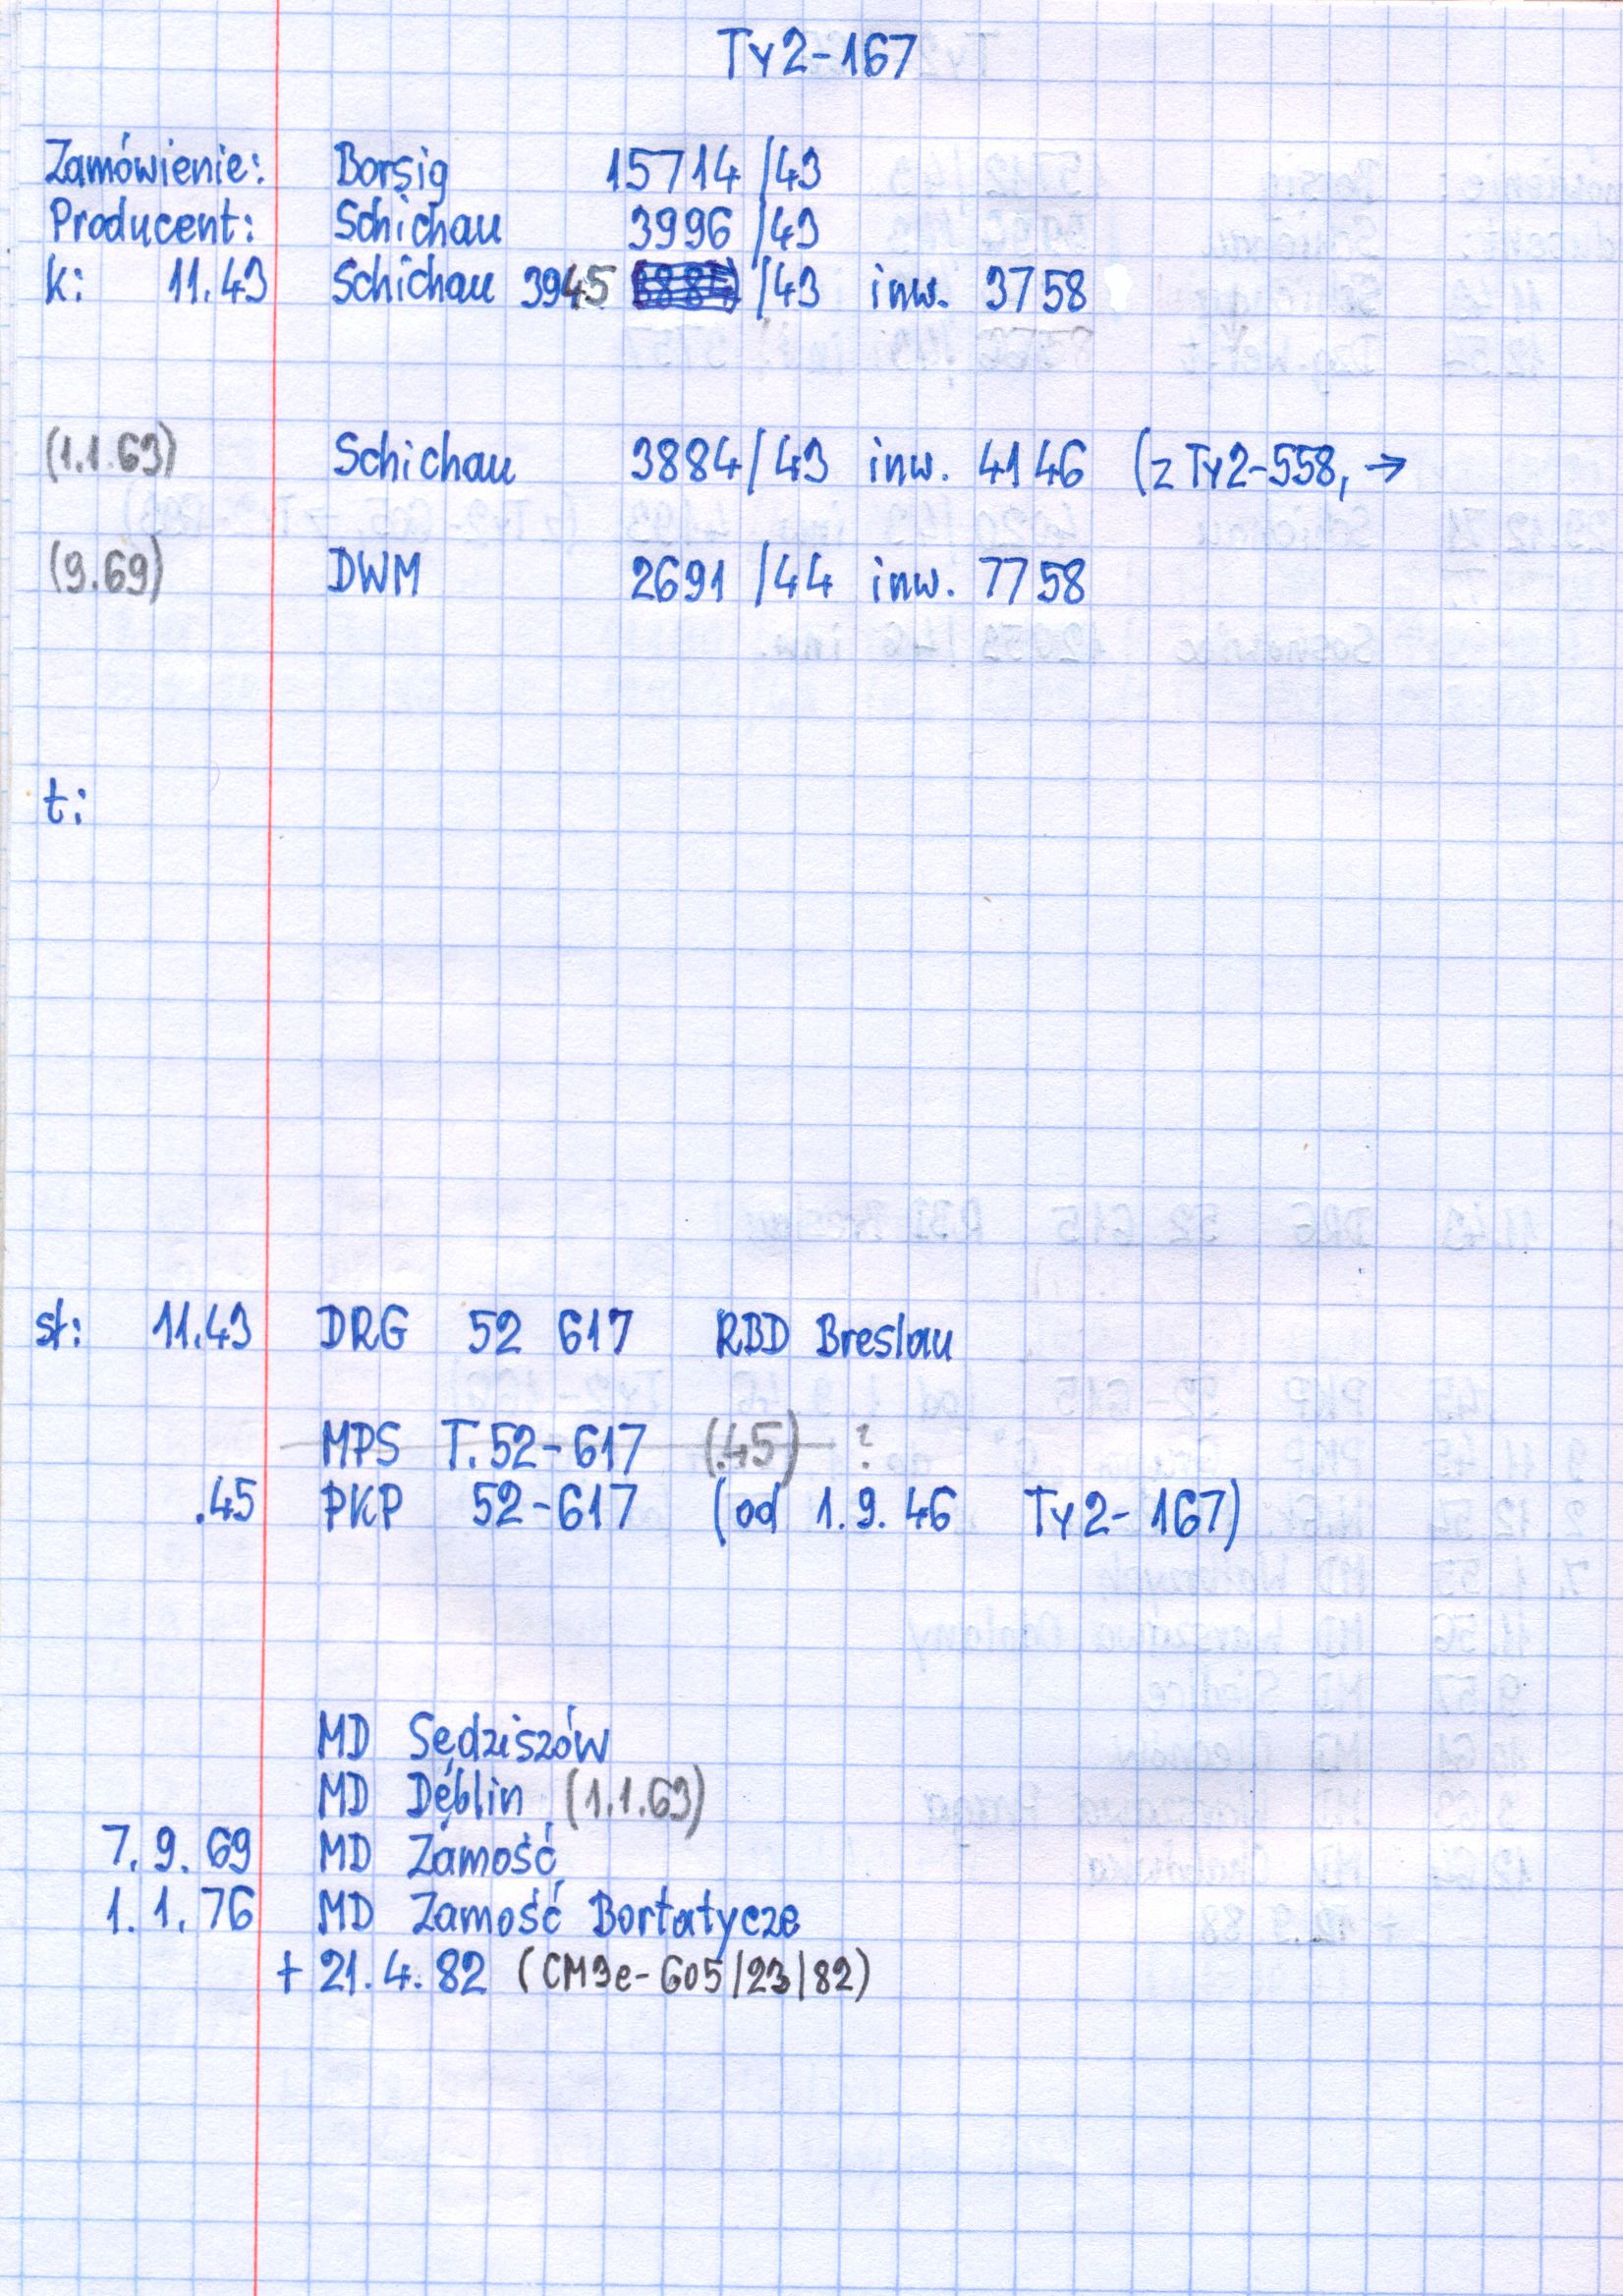 Ty2-167
Zamówienie: Borsig 15714/43
Producent: Schichau 3996/43
k: 11.43 Schichau 3945 /43 inw. 3758
(1.1.63) Schichau 3884/43 inw. 4146 (z Ty2-558, →
(9.69) DWM 2691/44 inw. 7758
t:
st: 11.43 DRG 52 617 RBD Breslau
MPS T.52-617 (.45) ?
.45 PKP 52-617 (od 1.9.46 Ty2-167)
MD Sędziszów
MD Dęblin (1.1.63)
7.9.69 MD Zamość
1.1.76 MD Zamość Bortatycze
+ 21.4.82 (CM3e-605/23/82)